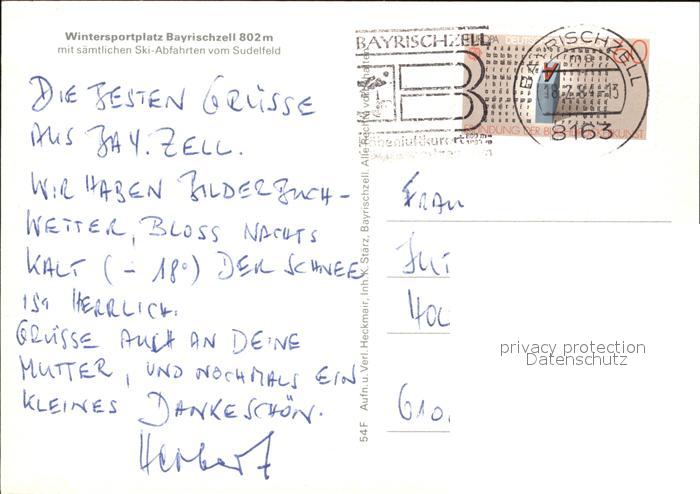 Wintersportplatz Bayrischzell 802 m
mit sämtlichen Ski-Abfahrten vom Sudelfeld
DIE BESTEN GRÜSSE
AUS BAY. ZELL.
WIR HABEN BILDERBUCH-
WETTER, BLOSS NACHTS
KALT (-18°) DER SCHNEE
IST HERRLICH.
GRÜSSE AUCH AN DEINE
MUTTER, UND NOCHMALS EIN
KLEINES DANKESCHÖN.
Herbert
54 F Aufn. u. Verl. Heckmair, Inh. K. Starz, Bayrischzell. Alle Rechte vorbehalten
BAYRISCHZELL
BAYRISCHZELL
8163
FRAU
privacy protection
Datenschutz